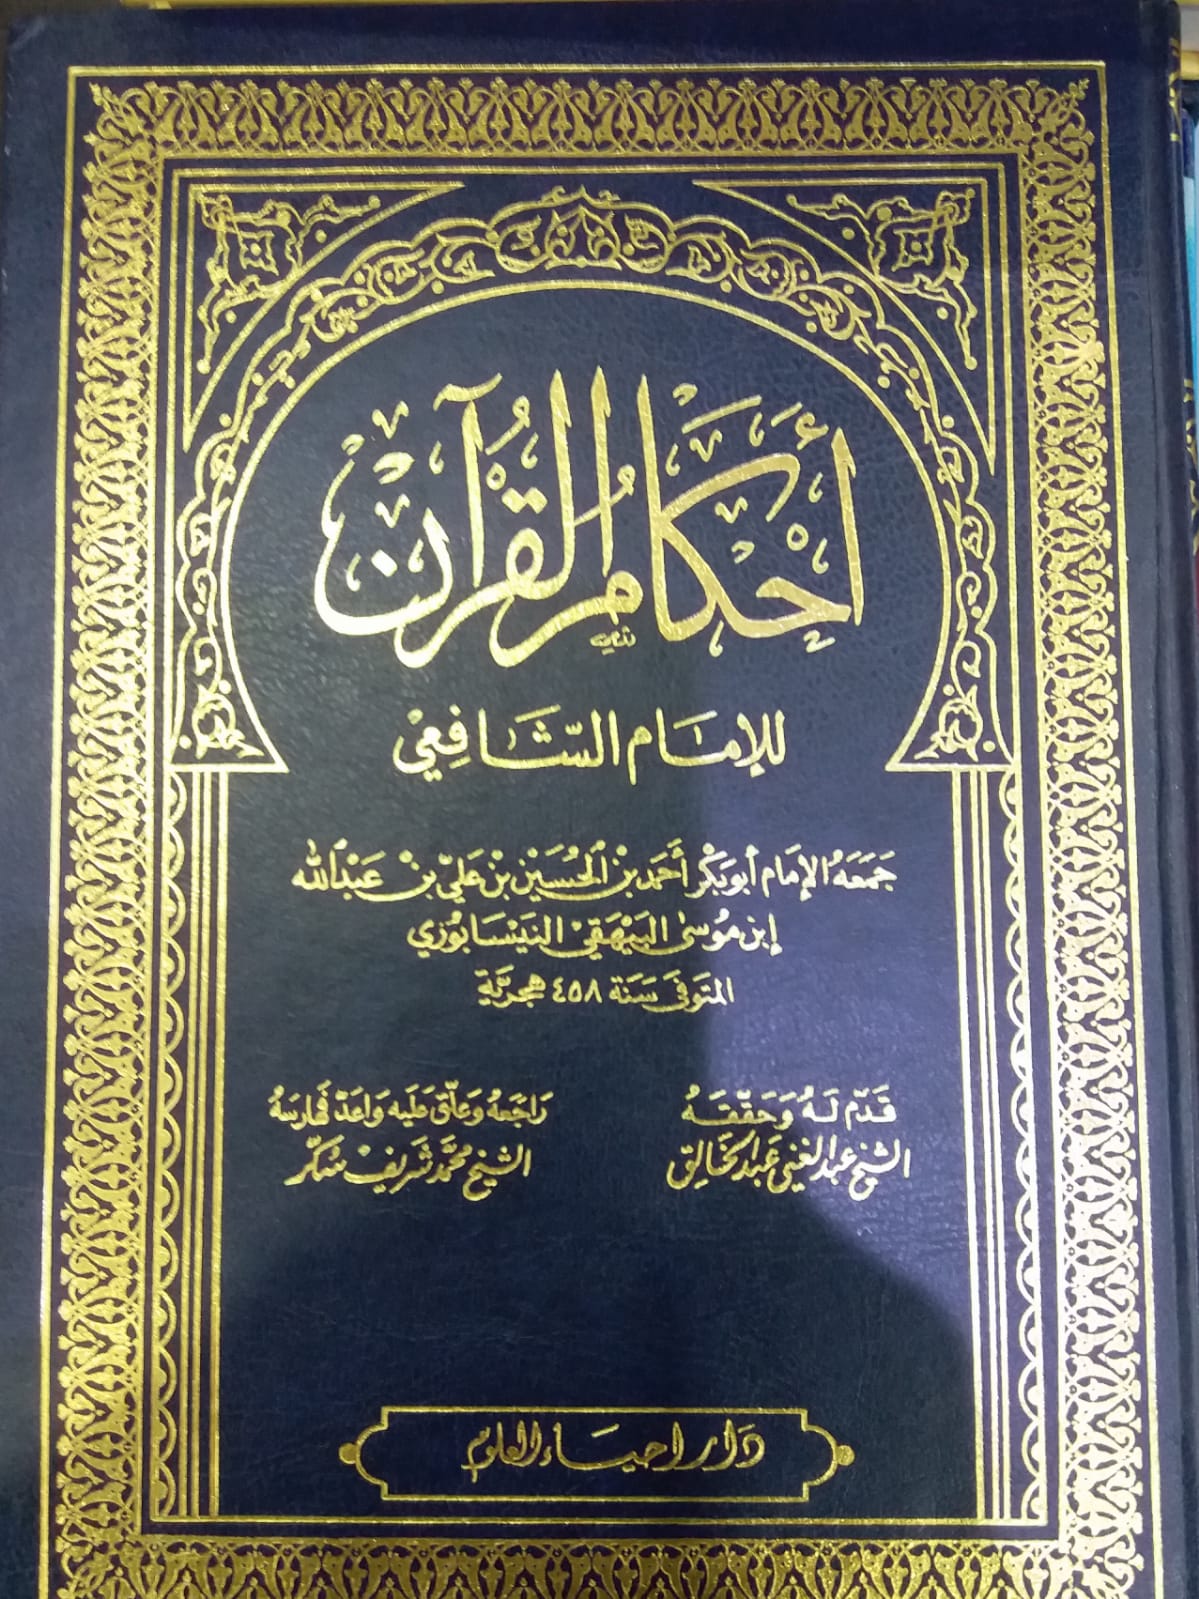 أَحْكَامُ القُرْآن
للإمَام الشَّافِعِيْ
جَمَعَهُ الإمَام أبوبَكْر أَحمَد بنْ الحُسَيْن بنْ عَليّ بنْ عَبْدالله
إبن مُوسىٰ البَيْهَقيْ النَيْسَابُوري
المتَوفىَّ سَنَة ٤٥٨ هجريَّة
قَدّم لَهُ وَحَقّقَهُ
الشيخ عبد الغني عَبدالخَالِق
رَاجَعهُ وَعلّق عَلَيه وَاعَدّ فهَارسَهُ
الشيخ محمَّد شَريف سُكّر
دَار احيَاء العلوم